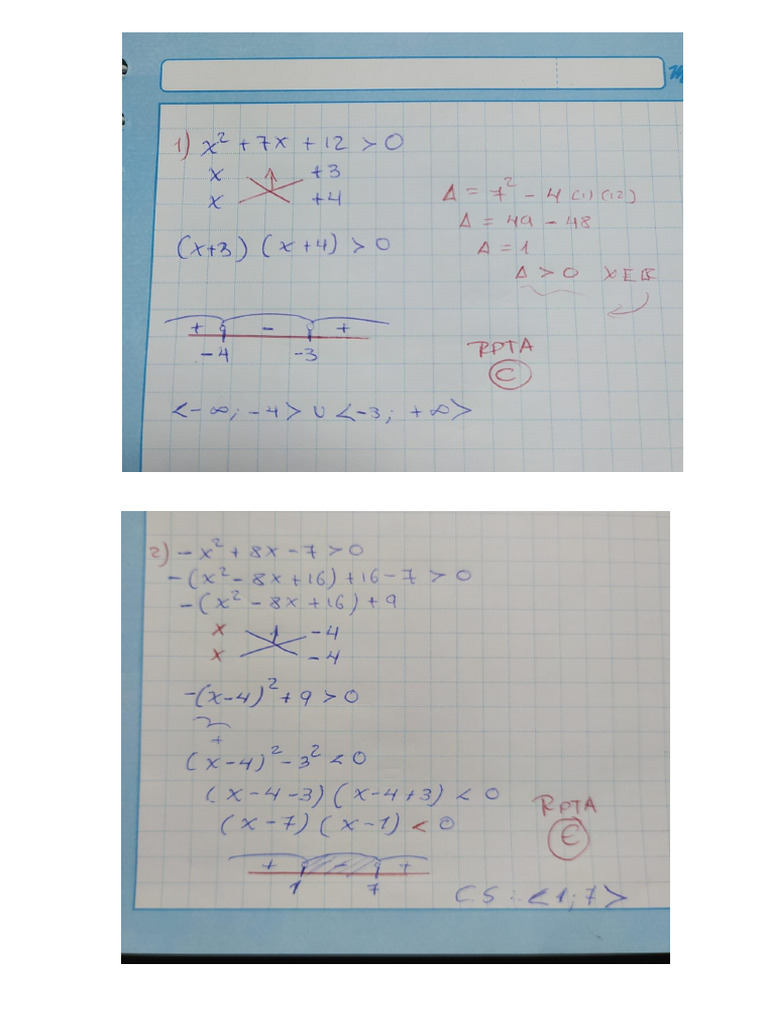 1) x² + 7x + 12 > 0
x +3
x +4
(x+3) (x+4) > 0
+ - +
-4 -3
<-∞; -4> U <-3; +∞>
Δ = 7² - 4 (1) (12)
Δ = 49 - 48
Δ = 1
Δ > 0 X E R
RPTA
C
2) -x² + 8x - 7 > 0
-(x² - 8x + 16) + 16 - 7 > 0
-(x² - 8x + 16) + 9
x -4
x -4
-(x-4)² + 9 > 0
+
(x-4)² - 3² < 0
(x-4-3) (x-4+3) < 0
(x-7) (x-1) < 0
+ - +
1 7
RPTA
E
C.S: <1; 7>